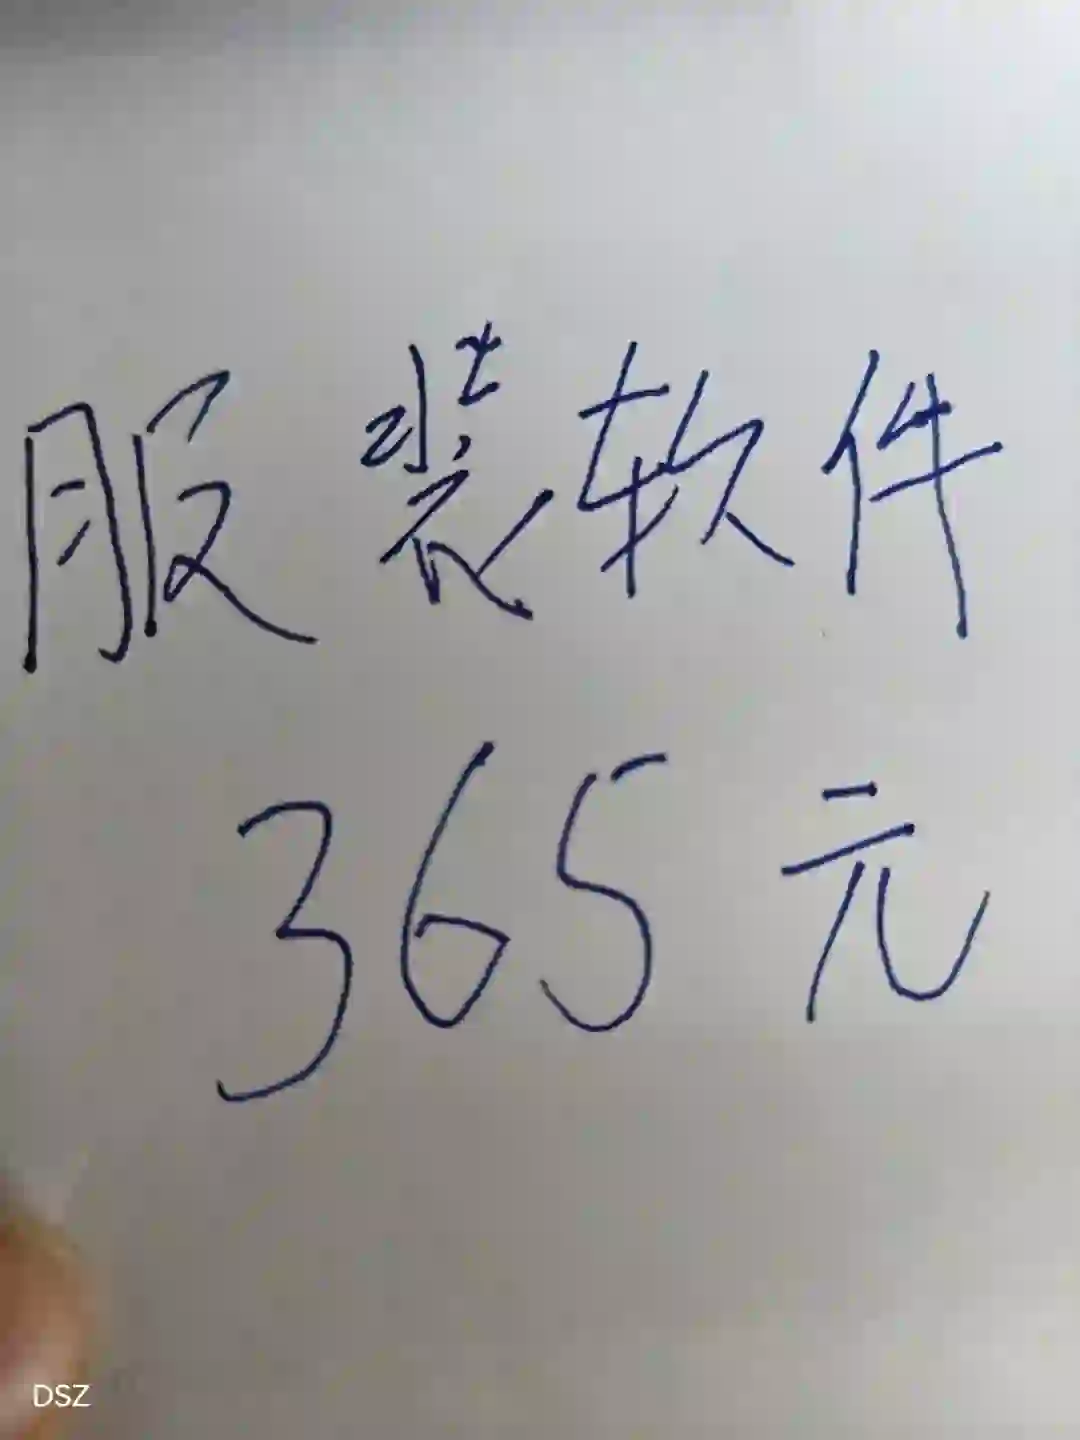 服装软件
365元
DSZ